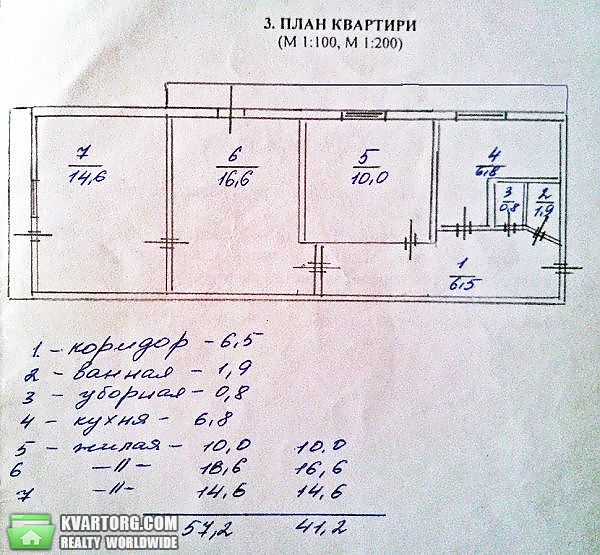 3. ПЛАН КВАРТИРИ
(М 1:100, М 1:200)
7
14,6
6
16,6
5
10,0
4
6,8
3
0,8
2
1,9
1
6,5
1 – коридор – 6,5
2 – ванная – 1,9
3 – уборная – 0,8
4 – кухня – 6,8
5 – жилая – 10,0 10,0
6 –//– 16,6 16,6
7 –//– 14,6 14,6
57,2 41,2
KVARTORG.COM
REALTY WORLDWIDE